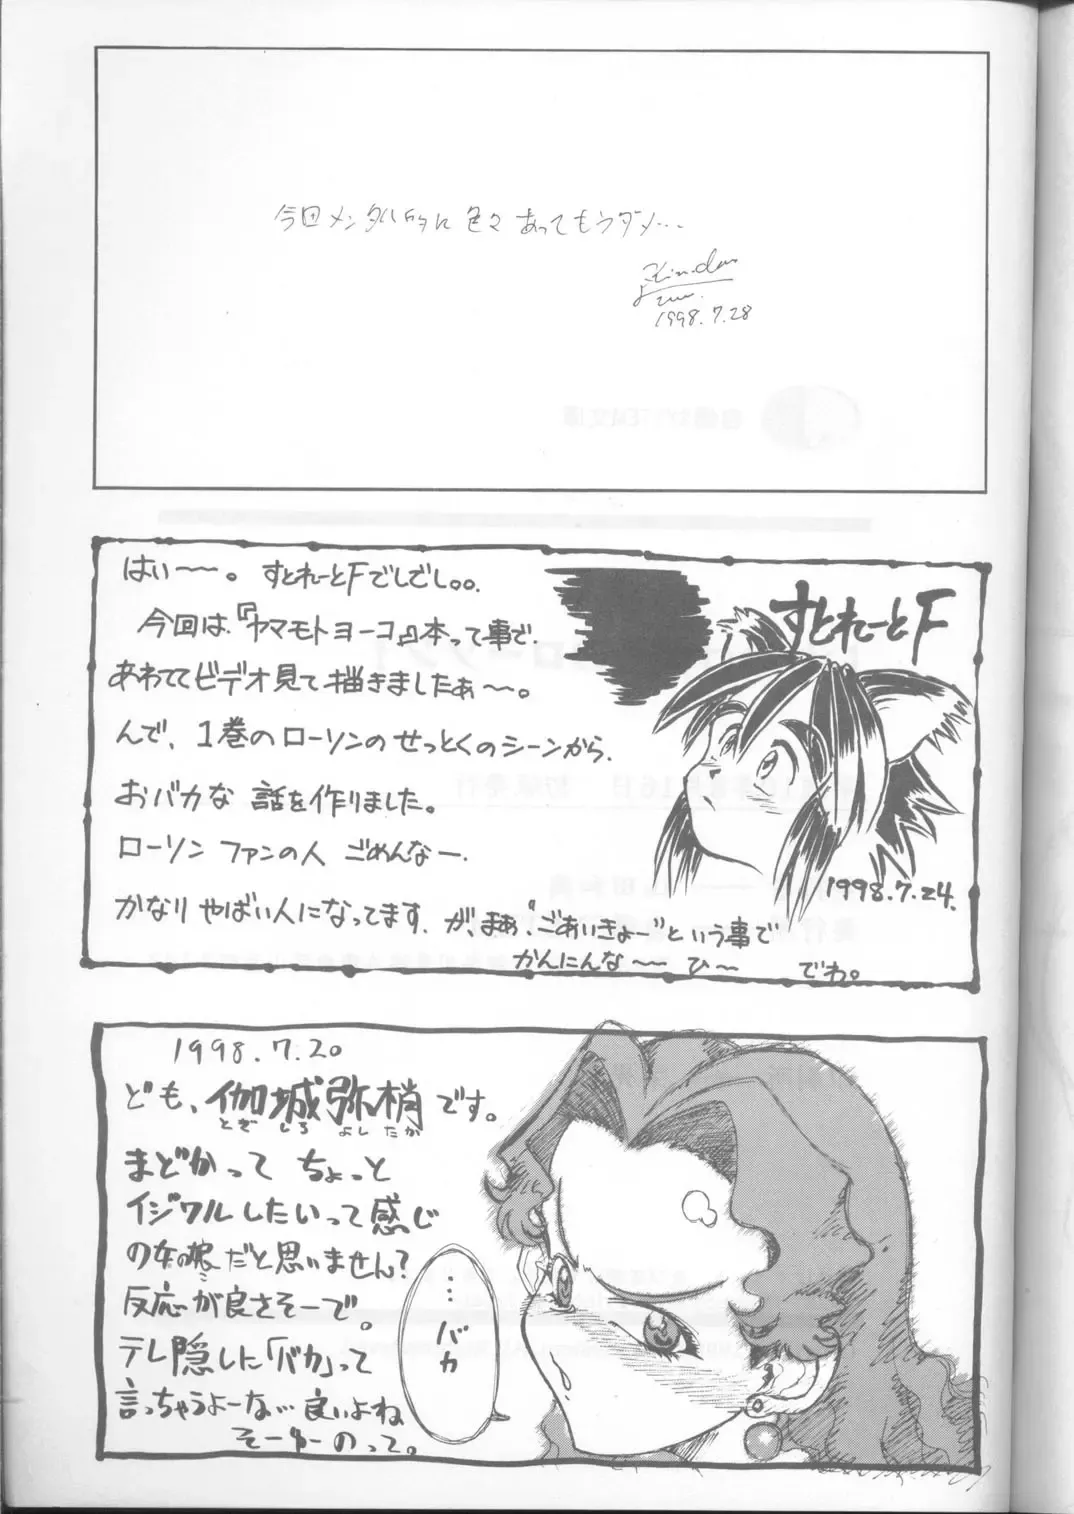 今回メンタル的に色々あってもうダメ…
1998.7.28
はぃ〜〜。すとれーとFでしでし。。
すとれーとF
今回は『ヤマモトヨーコ』本って事で、
あわててビデオ見て描きましたぁ〜〜。
んで、1巻のローソンのせっとくのシーンから、
おバカな話を作りました。
ローソンファンの人ごめんなー。
かなりやばい人になってます。が、まぁ、"ごあいきょー"という事で
かんにんな〜〜 ひ〜 でわ。
1998.7.24.
1998.7.20
ども、伽城弥梢です。
とぎしろ よしたか
まどかって ちょっと
イジワルしたいって感じ
の女の娘だと思いません?
反応が良さそーで。
テレ隠した「バカ」って
言っちゃうよーな… 良いよね
そーゆーのって。
…バカ